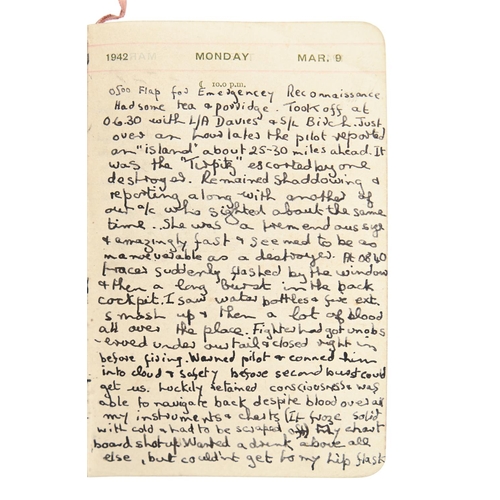 1942 MONDAY MAR. 9
☾ 10.0 p.m.
0500 Flap for Emergencey Reconnaissance.
Had some tea & porridge. Took off at
06.30 with L/A Davies & S/L Birch. Just
over an hour later the pilot reported
an "island" about 25-30 miles ahead. It
was the "Tirpitz" escorted by one
destroyer. Remained shaddowing &
reporting along with another of
our a/c who sighted about the same
time. She was a tremendous sight
& amazingly fast & seemed to be as
manoeuverable as a destroyer. At 0840
tracer suddenly flashed by the window
& then a long burst in the back
cockpit. I saw water bottles & fire ext.
smash up & then a lot of blood
all over the place. Fighter had got unobs
-erved under our tail & closed right in
before firing. Warned pilot & conned him
into cloud & safety before second burst could
get us. Luckily retained consciousness & was
able to navigate back despite blood over all
my instruments & charts (It froze solid
with cold & had to be scraped off) My chart
board shot up. Wanted a drink above all
else, but couldn't get to my hip flask